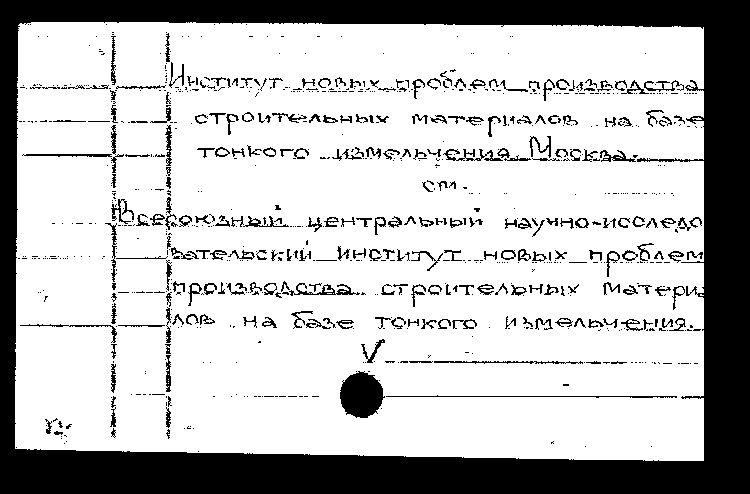 Институт новых проблем производства
строительных материалов на базе
тонкого измельчения Москва.
см.
Всесоюзный центральный научно-исследо
вательский институт новых проблем
производства строительных материа
лов на базе тонкого измельчения.
V